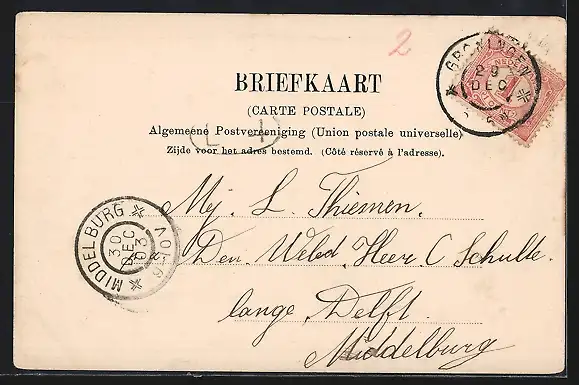 2
GRONINGEN
29
DEC
NEDER
1
BRIEFKAART
(CARTE POSTALE)
Algemeene Postvereeniging (Union postale universelle)
Zijde voor het adres bestemd. (Côté réservé à l'adresse).
L 1
MIDDELBURG
30
DEC
03
6-7 V
Mej. L. Thiemen.
Den Weled. Heer C Schulte.
lange Delft.
Middelburg